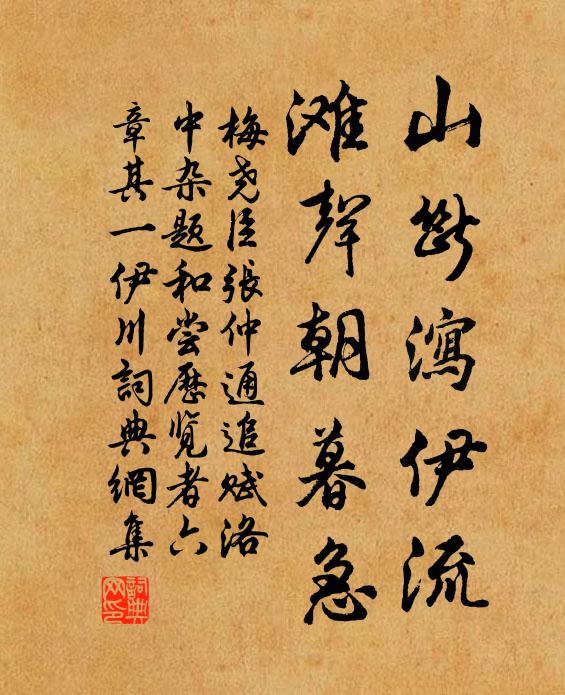 山斷瀉伊流
滩聲朝暮急
梅尧臣張仲通追赋洛
中杂题和尝歷览者六
章其一伊川詞典網集
詞典
网印